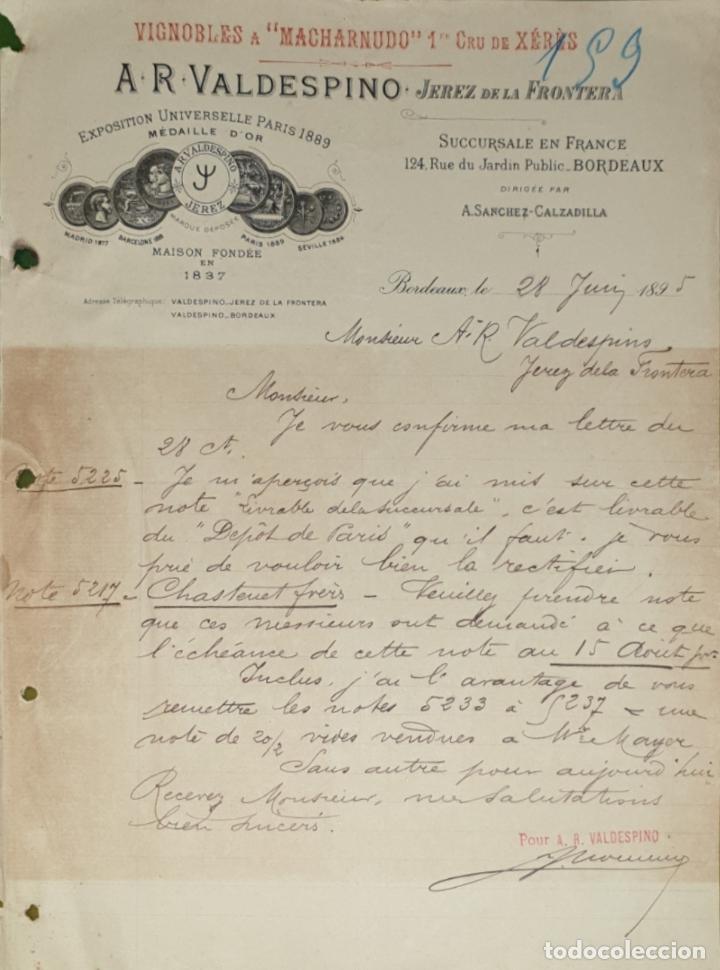 VIGNOBLES A "MACHARNUDO" 1er CRU DE XÉRÈS
159
A·R·VALDESPINO· JEREZ DE LA FRONTERA
EXPOSITION UNIVERSELLE PARIS 1889
MÉDAILLE D'OR
A.R.VALDESPINO
JEREZ
MARQUE DÉPOSÉE
MADRID 1877
BARCELONE 1888
PARIS 1889
SÉVILLE 1884
MAISON FONDÉE
EN
1837
Adresse Télégraphique: VALDESPINO_JEREZ DE LA FRONTERA
VALDESPINO_BORDEAUX
SUCCURSALE EN FRANCE
124, Rue du Jardin Public_BORDEAUX
DIRIGÉE PAR
A. SANCHEZ-CALZADILLA
Bordeaux, le 28 Juin 1895
Monsieur A. R. Valdespino
Jerez de la Frontera
Monsieur,
Je vous confirme ma lettre du
28 ct.
Note 5225 - Je m'aperçois que j'ai mis sur cette
note "livrable de la succursale", c'est livrable
du "Depôt de Paris" qu'il faut. Je vous
prie de vouloir bien la rectifier.
Note 5217 - Chastenet frères - Veuillez prendre note
que ces messieurs ont demandé à ce que
l'échéance de cette note au 15 Août
Inclus, j'ai l'avantage de vous
remettre les notes 5233 à 5237 une
note de 20/2 vides vendues a Mayer
Sans autre pour aujourd'hui
Recevez Monsieur, mes salutations
bien sincères.
Pour A. R. VALDESPINO
todocoleccion.net